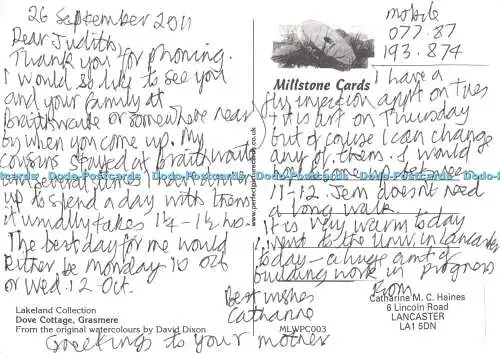 26 September 2011
Dear Judith,
Thank you for phoning.
I would so like to see you
and your family at
Braithwaite or somewhere near
by when you come up. My
cousins stayed at Braithwaite
several times I was driven
up to spend a day with them
it usually takes 1¼ - 1½ hrs.
The best day for me would
Either be Monday 10 Oct
or Wed. 12 Oct.
Lakeland Collection
Dove Cottage, Grasmere
From the original watercolours by David Dixon
Millstone Cards
www.perfectpostcards.co.uk
MLWPC003
mobile
077.87
193.874
I have a
flu injection appt on Tues
+ is art on Thursday
but of course I can change
any of them. I would
11-12. Jem doesn't need
a long walk.
It is very warm today
I went to the Univ. in Lancaster
today - a huge amt of
building work in progress
from
Catharine M. C. Haines
6 Lincoln Road
LANCASTER
LA1 5DN
Best wishes
Catharine
Greetings to your mother
Dodo-Postcards Dodo-Postcards Dodo-Postcards Dodo-Postcards Dodo-Postcards